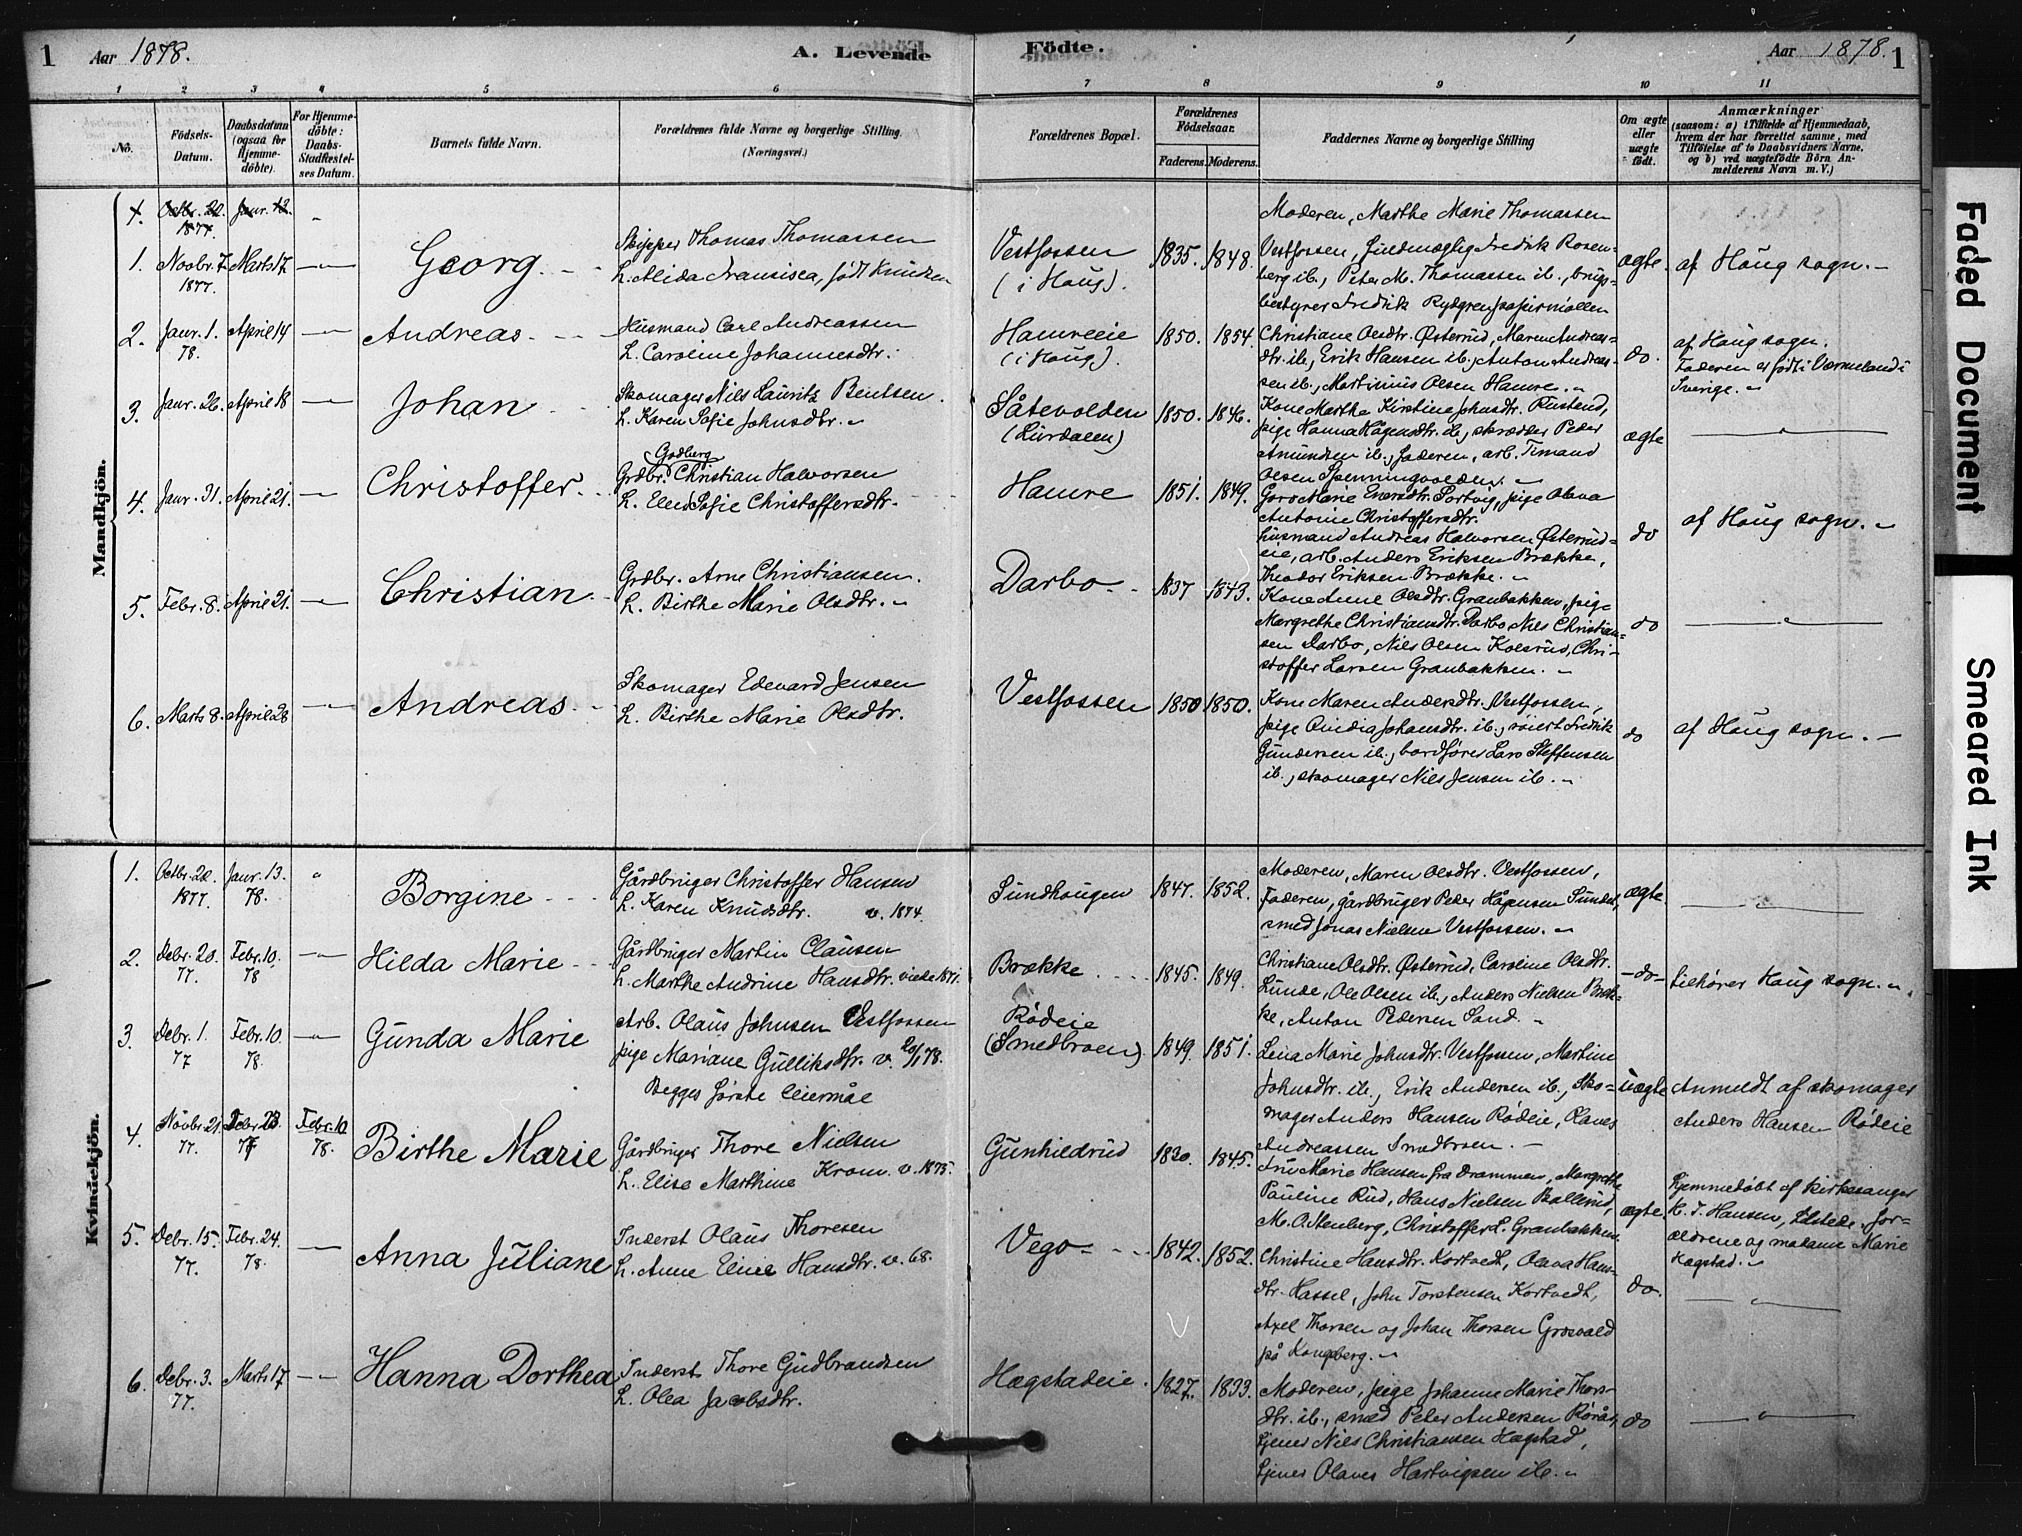 1 Aar 1878. A. Levende Födte. Aar 1878. 1
1 2 3 4 5 6 7 8 9 10 11
No.
Födsels-
Datum.
Daabsdatum
(ogsaa for
Hjemme-
döbte).
For Hjemme-
döbte:
Daabs-
Stadfæstel-
ses Datum.
Barnets fulde Navn.
Forældrenes fulde Navne og borgerlige Stilling.
(Næringsvei.)
Forældrenes Bopæl.
Forældrenes
Födselsaar.
Faderens. Moderens.
Faddernes Navne og borgerlige Stilling
Om ægte
eller
uægte
födt.
Anmærkninger
(saasom: a) i Tilfælde af Hjemmedaab,
hvem der har forrettet samme, med
Tilföielse af to Daabsvidners Navne,
og b) ved uægtefödte Börn An-
melderens Navn m. V.)
Mandkjön.
Octbr. 22. Janr. 13.
1877.
Moderen, Marthe Marie Thomassen
1. Novbr. 7. Marts 17.
1877.
Georg.
Skipper Thomas Thomassen
h. Alida Fransisca, født Knudsen
Vestfossen
(i Houg).
1835. 1848.
Vestfossen, fuldmægtig Fredrik Rosen-
berg ib., Peter M. Thomassen ib., brugs-
bestyrer Fredrik Rydgren papirmøllen
ægte.
af Houg sogn.
2. Janr. 1. April 14
78.
Andreas
Husmand Carl Andreassen
h. Caroline Johannesdtr.
Hamreeie
(i Houg).
1850. 1854.
Christiane Olsdtr. Østerud, Maren Andreas-
dtr. ib., Erik Hansen ib., Anton Andreas-
sen ib., Martinius Olsen Hamre.
do.
af Houg sogn.
Faderen er født i Værmeland i
Sverige.
3. Janr. 26. April 18
Johan
Skomager Nils Lauritz Bentsen.
h. Karen Sofie Johnsdtr.
Såtevolden
(Lurdalen)
1850. 1846.
Kone Marthe Kirstine Johnsdtr. Rustend,
pige Hanna Hågensdtr. ib., skrædder Peder
Amundsen ib., faderen, arb. Timand
Olsen Spenningvolden.
ægte
4. Janr. 31. April 21.
Christoffer.
Godberg
Grdbr. Christian Halvorsen
h. Elen Sofie Christoffersdtr.
Hamre
1851. 1849.
Goro Marie Enersdtr. Portvig, pige Olava
Antonie Christoffersdtr.
husmand Andreas Halvorsen Østerud-
eie, arb. Anders Eriksen Brække,
Theodor Eriksen Brække.
do
af Houg sogn.
5. Febr. 8. April 21.
Christian
Grdbr. Arne Christiansen.
h. Birthe Marie Olsdtr.
Darbo
1837 1843.
Kone Anne Olsdtr. Granbakken, pige
Margrethe Christiansdtr. Darbo, Nils Christian-
sen Darbo, Nils Olsen Kolsrud, Chri-
stoffer Larsen Granbakken.
do
6. Marts 8. April 28
Andreas
Skomager Edevard Jensen
h. Birthe Marie Olsdtr.
Vestfossen
1850 1850.
Kone Maren Andersdtr. Vestfossen,
pige Johansdtr. ib., Fredrik
Gundersen ib., bordfører Lars Steffensen
ib., skomager Nils Jensen ib.
do
af Houg sogn.
Kvindekjön.
1. Octbr. 22. Janr. 13.
1877. 78.
Borgine
Gårdbruger Christoffer Hansen
h. Karen Knudsdtr. v. 1874.
Sundhougen
1847. 1852.
Moderen, Maren Olsdtr. Vestfossen,
Faderen, gårdbruger Peder Håpensen Sundet,
smed Jonas Nielsen Vestfossen.
ægte
2. Debr. 20. Febr. 10.
77 78
Hilda Marie
Gårdbruger Martin Clausen
h. Marthe Andrine Hansdtr. viede 1871.
Brække
1845. 1849.
Christiane Olsdtr. Østerud, Caroline Olsdtr.
Lunde, Ole Olsen ib., Anders Nielsen Bræk-
ke, Anton Pedersen Sand.
do
tilhører Houg sogn.
3. Debr. 1. Febr. 10.
77 78.
Gunda Marie
Arb. Olaus Johnsen Vestfossen
pige Mariane Gulliksdtr. v. 20/1 78.
Begges første leiermål
Rødeie
(Smedbroen)
1849. 1851.
Lena Marie Johnsdtr. Vestfossen, Martine
Johnsdtr. ib., Erik Andersen ib., Sko-
mager Anders Hansen Rødeie, Olaves
Andreassen Smedbroen.
uægte
Anmeldt af skomager
Anders Hansen Rødeie
4. Novbr. 21. Debr. 23. Febr. 10
77. 77 78.
Birthe Marie
Gårdbruger Thore Nielsen
h. Elise Marthine Krom. v. 1875.
Gunhildrud
1830. 1845.
Fru Marie Hansen fra Drammen, Margrethe
Pauline Rud, Hans Nielsen Ballerud,
M. O. Stenberg, Christoffer L. Granbakken.
ægte.
Hjemmedøbt af kirkesanger
K. J. Hansen, tilstede for-
ældrene og madame Marie
Hagstad.
5. Debr. 15. Febr. 24.
77. 78.
Anna Juliane
Inderst Olaus Thoresen
h. Anne Eline Hansdtr. v. 68.
Vego
1842. 1852.
Christine Hansdtr. Kortvedt, Olava Hans-
dtr. Hassel, John Torstensen Kortvedt,
Axel Thorsen og Johan Thorsen Grosvald
på Kongsberg.
do.
6. Debr. 3. Marts 17
77.
Hanna Dorthea
Inderst Thore Gudbrandsen
h. Olea Jacobsdtr.
Hægstadeie.
1827. 1833.
Moderen, pige Johanne Marie Thors-
dtr. ib., smed Peter Andersen Rørås,
tjener Nils Christiansen Hægstad,
tjener Olaves Hartvigsen ib.
do
Faded Document
Smeared Ink